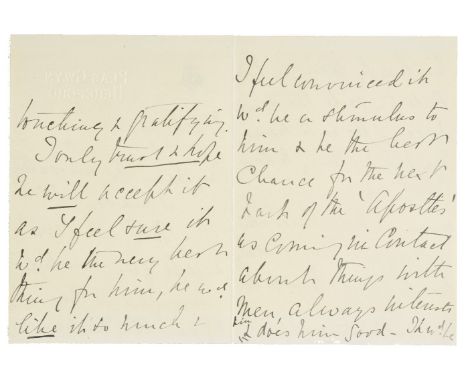 touching & gratifying.
I only trust & hope
he will accept it
as I feel sure it
wd. be the very best
thing for him, he wd.
like it so much &
I feel convinced it
wd. be a stimulus to
him & be the best
chance for the next
part of the 'Apostles'
as coming in contact
about things with
men, always interests
him
& does him good - It wd. be